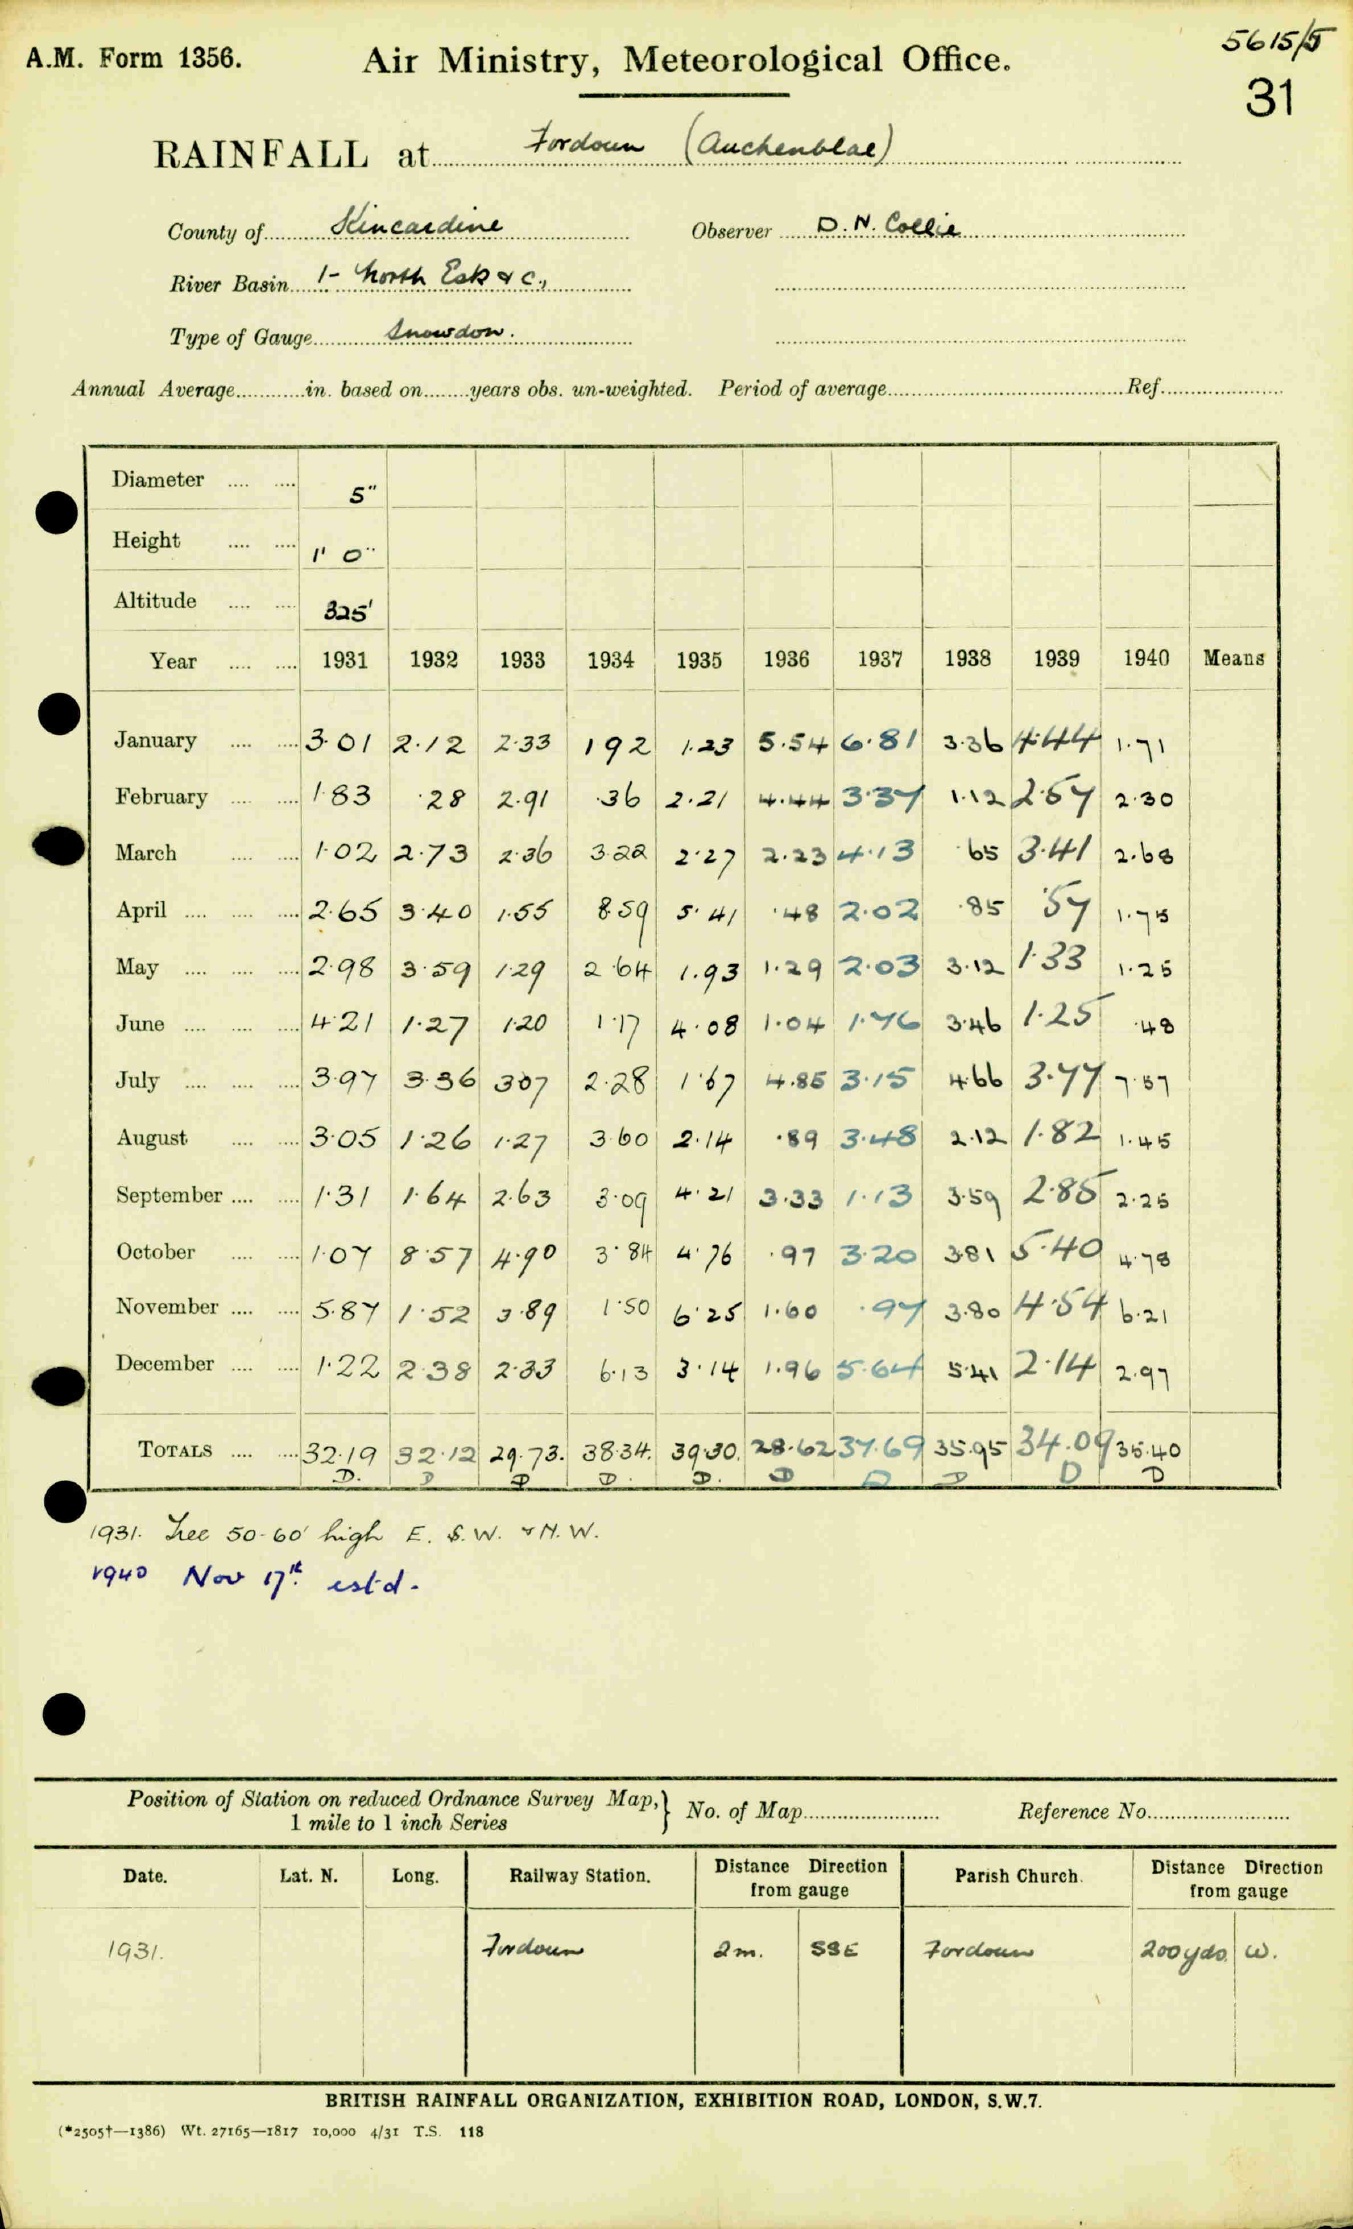 5615/5
A.M. Form 1356.
Air Ministry, Meteorological Office.
31
RAINFALL at Fordoun (Auchenblae)
County of Kincardine Observer D. N. Collie
River Basin 1- North Esk & c.,
Type of Gauge Snowdon.
Annual Average............in. based on........years obs. un-weighted. Period of average..............................Ref.....................
Diameter .... .... 5"
Height .... .... 1' 0"
Altitude .... .... 325'
Year .... .... 1931 1932 1933 1934 1935 1936 1937 1938 1939 1940 Means
January .... .... 3.01 2.12 2.33 192 1.23 5.54 6.81 3.36 4.44 1.71
February .... .... 1.83 .28 2.91 .36 2.21 4.44 3.37 1.12 2.57 2.30
March .... .... 1.02 2.73 2.36 3.22 2.27 2.23 4.13 .65 3.41 2.68
April .... .... .... 2.65 3.40 1.55 8.59 5.41 .48 2.02 .85 .57 1.75
May .... .... .... 2.98 3.59 1.29 2.64 1.93 1.29 2.03 3.12 1.33 1.25
June .... .... .... 4.21 1.27 1.20 1.17 4.08 1.04 1.76 3.46 1.25 .48
July .... .... .... 3.97 3.36 307 2.28 1.67 4.85 3.15 4.66 3.77 7.57
August .... .... 3.05 1.26 1.27 3.60 2.14 .89 3.48 2.12 1.82 1.45
September .... .... 1.31 1.64 2.63 3.09 4.21 3.33 1.13 3.59 2.85 2.25
October .... .... 1.07 8.57 4.90 3.84 4.76 .97 3.20 3.81 5.40 4.78
November .... .... 5.87 1.52 3.89 1.50 6.25 1.60 .97 3.80 4.54 6.21
December .... .... 1.22 2.38 2.33 6.13 3.14 1.96 5.64 5.41 2.14 2.97
TOTALS .... .... 32.19 32.12 29.73. 38.34. 39.30. 28.62 37.69 35.95 34.09 35.40
D. D D D. D. D D D D D
1931. Tree 50-60' high E. S.W. & N.W.
1940 Nov 17th est'd.
Position of Station on reduced Ordnance Survey Map, } No. of Map........................ Reference No.........................
1 mile to 1 inch Series
Date. Lat. N. Long. Railway Station. Distance Direction from gauge Parish Church. Distance Direction from gauge
1931. Fordoun 2m. SSE Fordoun 200yds. W.
BRITISH RAINFALL ORGANIZATION, EXHIBITION ROAD, LONDON, S.W.7.
(*2505†—1386) Wt. 27165—1817 10,000 4/31 T.S. 118